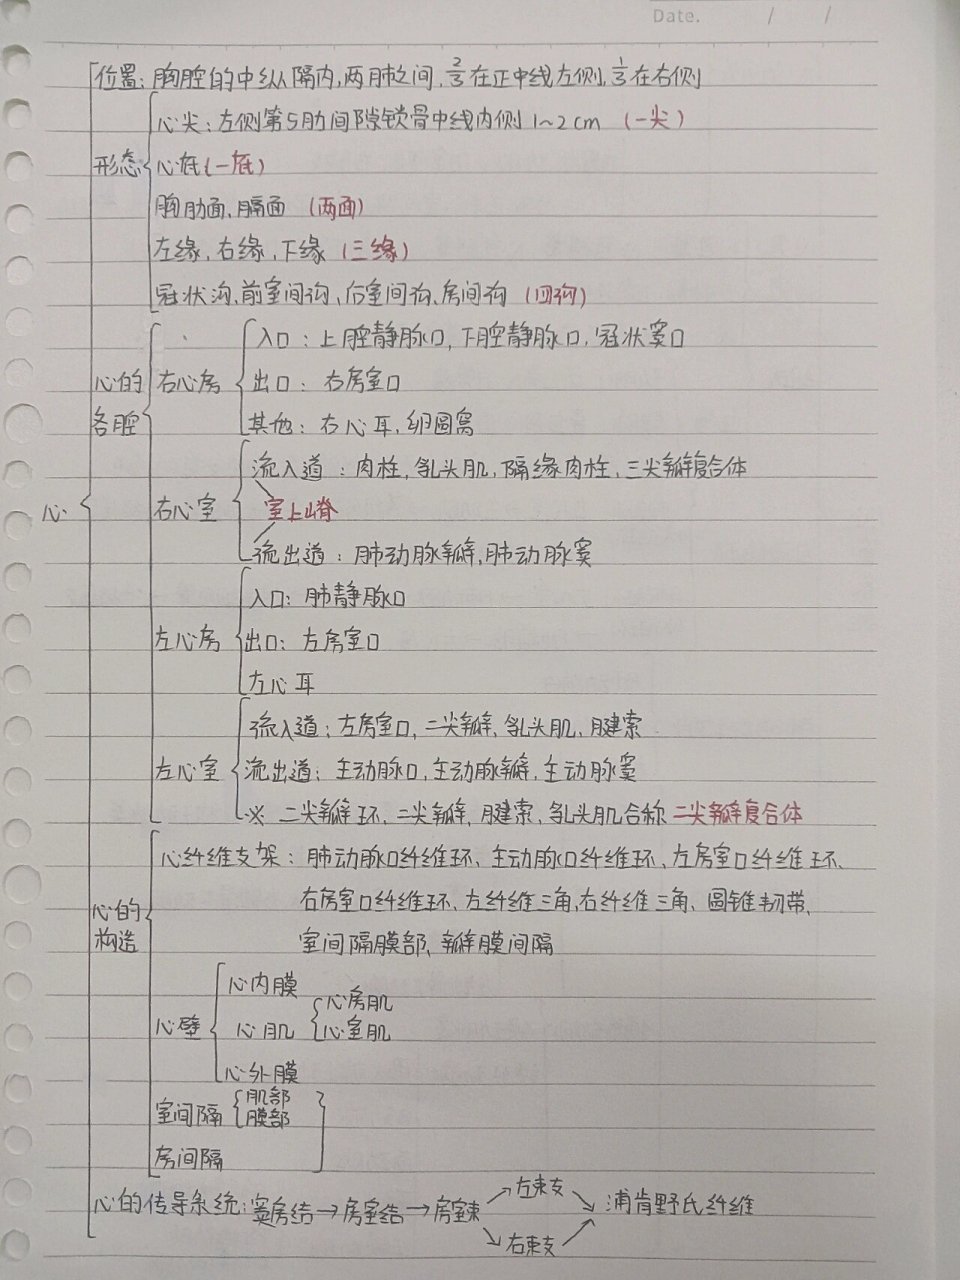 Date. / /
位置：胸腔的中纵隔内，两肺之间，2/3在正中线左侧，1/3在右侧
心尖：左侧第5肋间隙锁骨中线内侧1~2cm （一尖）
形态 心底（一底）
胸肋面、膈面 （两面）
左缘、右缘、下缘（三缘）
冠状沟、前室间沟、后室间沟、房间沟 （四沟）
入口：上腔静脉口，下腔静脉口，冠状窦口
心的 右心房 出口：右房室口
各腔 其他：右心耳，卵圆窝
流入道：肉柱，乳头肌，隔缘肉柱，三尖瓣复合体
心 右心室 室上嵴
流出道：肺动脉瓣，肺动脉窦
入口：肺静脉口
左心房 出口：左房室口
左心耳
流入道：左房室口，二尖瓣，乳头肌、腱索
左心室 流出道：主动脉口，主动脉瓣，主动脉窦
※ 二尖瓣环、二尖瓣，腱索，乳头肌合称 二尖瓣复合体
心纤维支架：肺动脉口纤维环、主动脉口纤维环、左房室口纤维环、
心的 右房室口纤维环、左纤维三角，右纤维三角、圆锥韧带，
构造 室间隔膜部、瓣膜间隔
心内膜
心房肌
心壁 心肌 心室肌
心外膜
肌部
室间隔 膜部
房间隔
心的传导系统：窦房结→房室结→房室束 左束支 浦肯野氏纤维
右束支